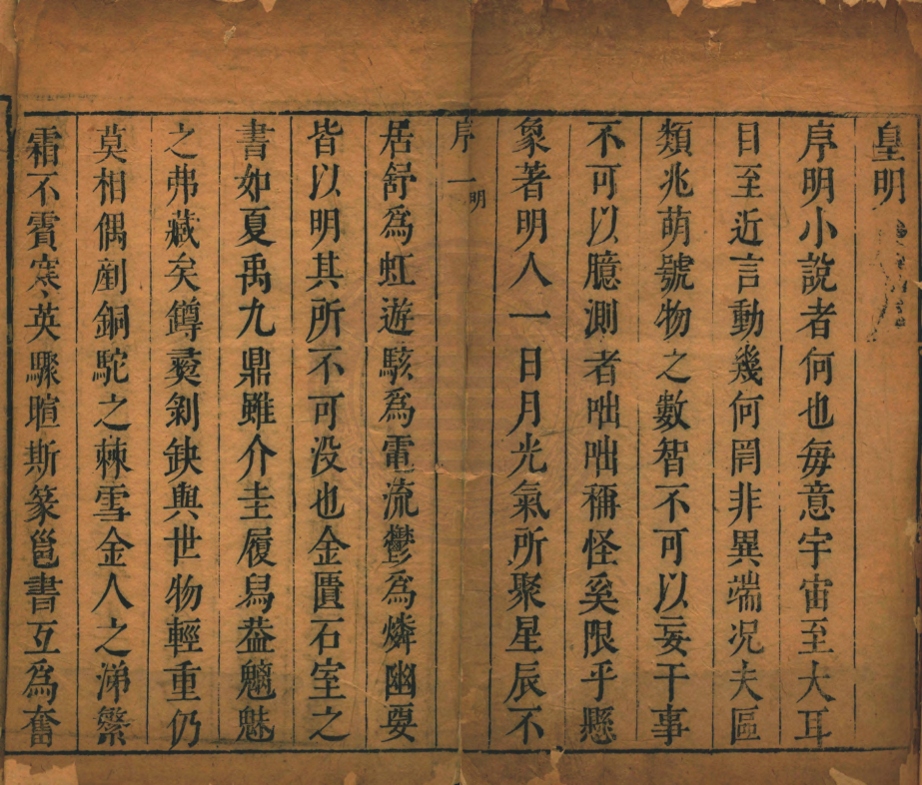 皇明
序明小說者何也每意宇宙至大耳
目至近言動幾何罔非異端况夫區
類兆萌號物之數智不可以妄干事
不可以臆測者咄咄稱怪奚限乎懸
象著明人一日月光氣所聚星辰不
序 一 明
居舒爲虹遊駭爲電流鬱爲燐幽要
皆以明其所不可没也金匱石室之
書如夏禹九鼎雖介圭履舄葢魑魅
之弗藏矣鐏彞剝缺與世物輕重仍
莫相偶剷銅駝之棘雪金人之涕縏
霜不賓寒英驟暄斯篆邕書互爲奮